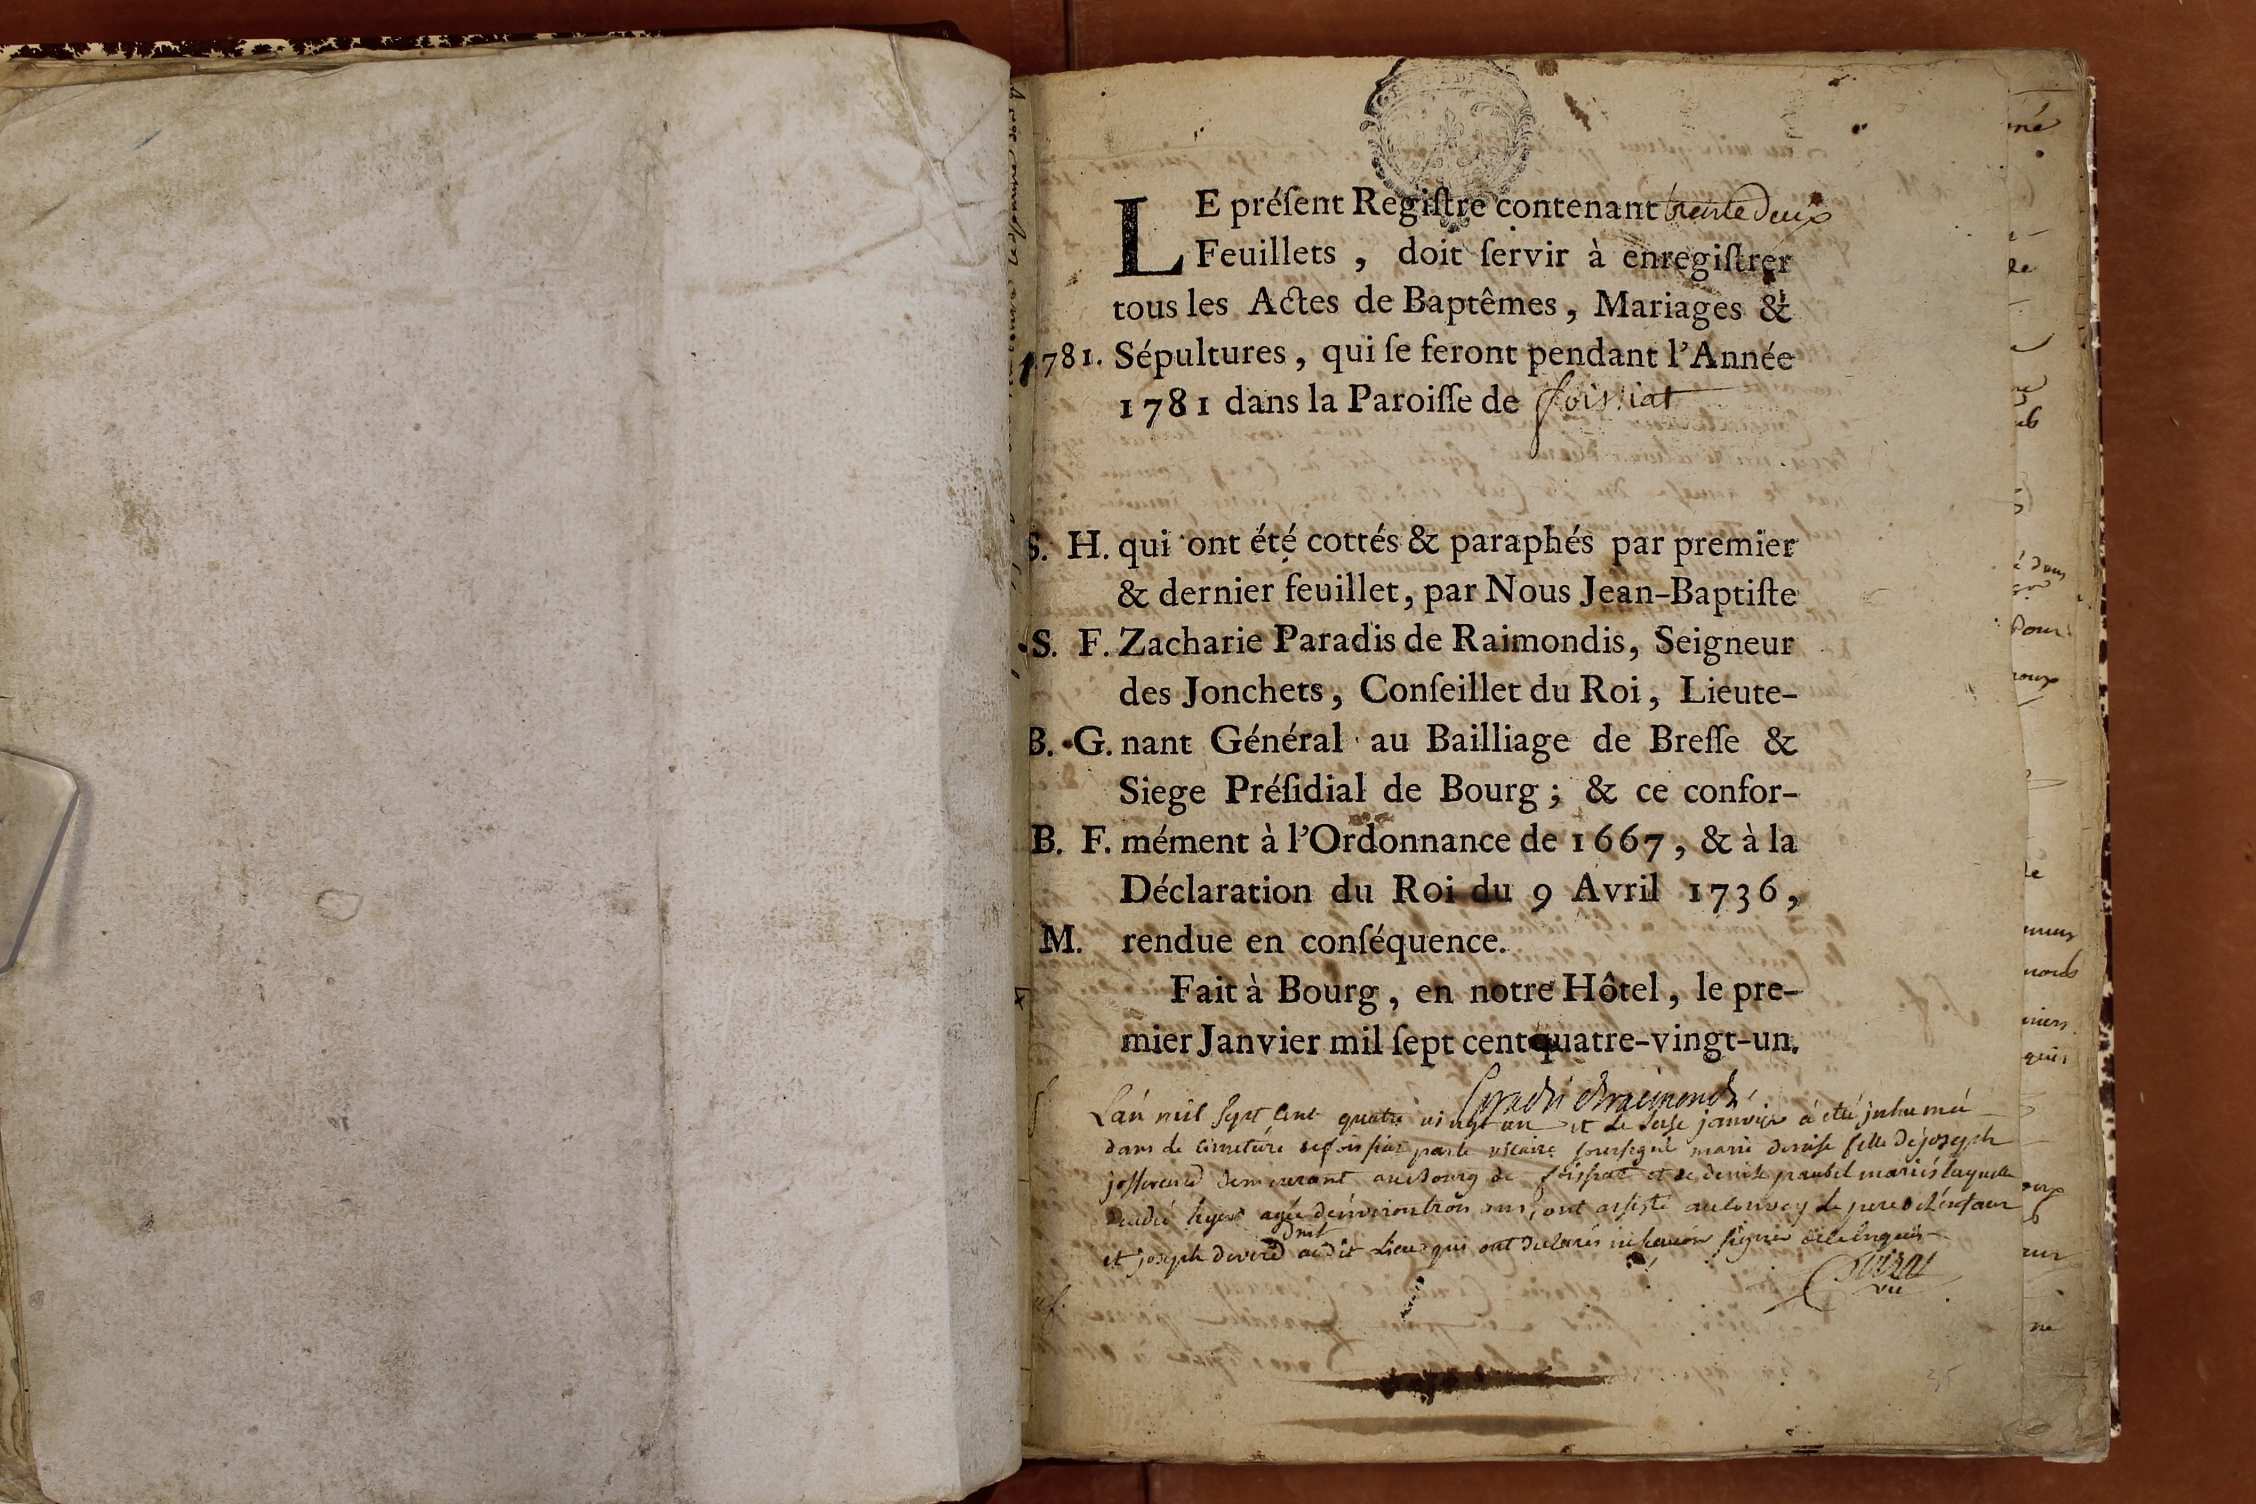 LE préſent Regiſtre contenant trente deux
Feuillets, doit ſervir à enregiſtrer
tous les Actes de Baptêmes, Mariages &
1781. Sépultures, qui ſe feront pendant l'Année
1781 dans la Paroiſſe de foissiat
S. H. qui ont été cottés & paraphés par premier
& dernier feuillet, par Nous Jean-Baptiſte
S. F. Zacharie Paradis de Raimondis, Seigneur
des Jonchets, Conſeillet du Roi, Lieute-
B. G. nant Général au Bailliage de Breſſe &
Siege Préſidial de Bourg; & ce confor-
B. F. mément à l'Ordonnance de 1667, & à la
Déclaration du Roi du 9 Avril 1736,
M. rendue en conſéquence.
Fait à Bourg, en notre Hôtel, le pre-
mier Janvier mil ſept cent quatre-vingt-un.
Paradis de raimondis
L'an mil sept cent quatre vingt un et le seise janvier a été inhumée
dans le cimetière de foissiat par le vicaire soussigné marie denise fille de joseph
demeurant au bourg de foissiat et de denise mariés laquelle
agée d'environ trois ans, ont assisté au convoy le pere de l'enfant
et joseph dudit lieu qui ont déclarés ne savoir signer de ce enquis
vic